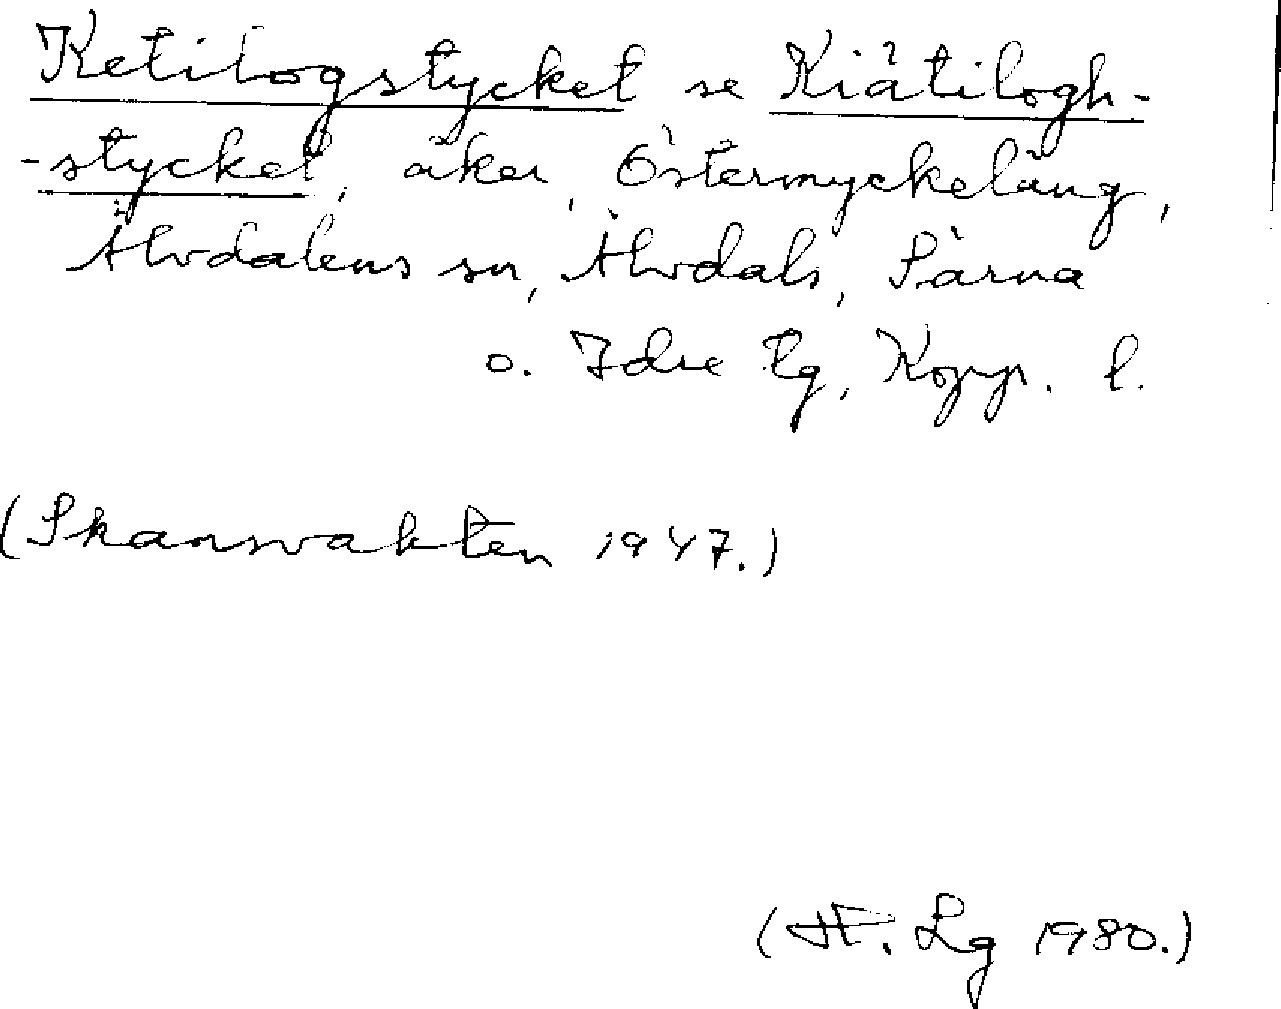 Ketilogstycket se Kiätilogh-
-stycket, åker, Östermyckeläng,
Älvdalens sn, Älvdals, Särna
o. Idre tg, Kopp. l.
(Skansvakten 1947.)
Lg 1980.)